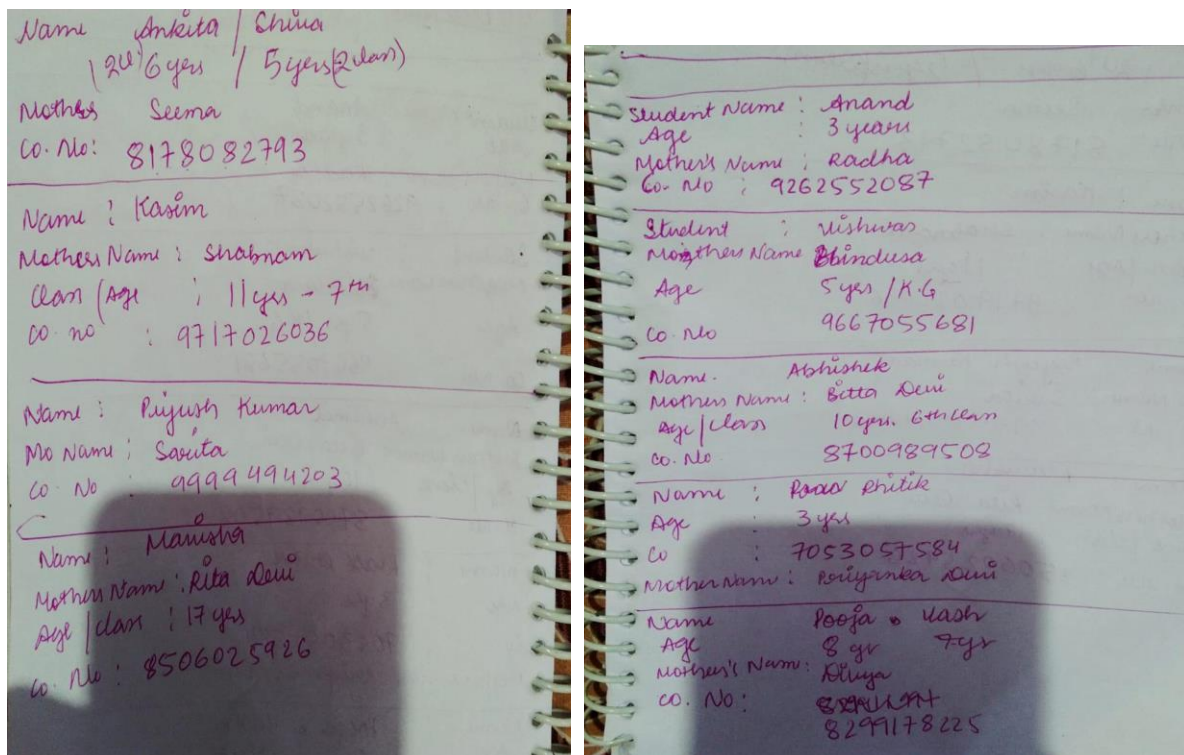 Name Ankita / Shiva
(2cl) 6 yers / 5 yers (2 class)
Mothers Seema
Co. No: 8178082793
Name : Kasim
Mothers Name : Shabnam
Class / Age : 11 yrs - 7th
Co. no : 9717026036
Name : Piyush Kumar
Mo Name : Sarita
Co. No : 9999494203
Name : Manisha
Mothers Name : Rita Devi
Age / class : 17 yrs
Co. No : 8506025926
Student Name : Anand
Age : 3 years
Mother's Name : Radha
Co. No : 9262552087
Student : Vishwas
Mothers Name Bindusa
Age 5 yrs / K.G
Co. No 9667055681
Name. Abhishek
Mothers Name : Bitta Devi
Age / class 10 yrs. 6th class
Co. No 8700989508
Name : Rhitik
Age : 3 yrs
Co : 7053057584
Mother Name : Priyanka Devi
Name Pooja Kash
Age 8 yr 7 yr
Mother's Name : Divya
Co. No :
8299178225